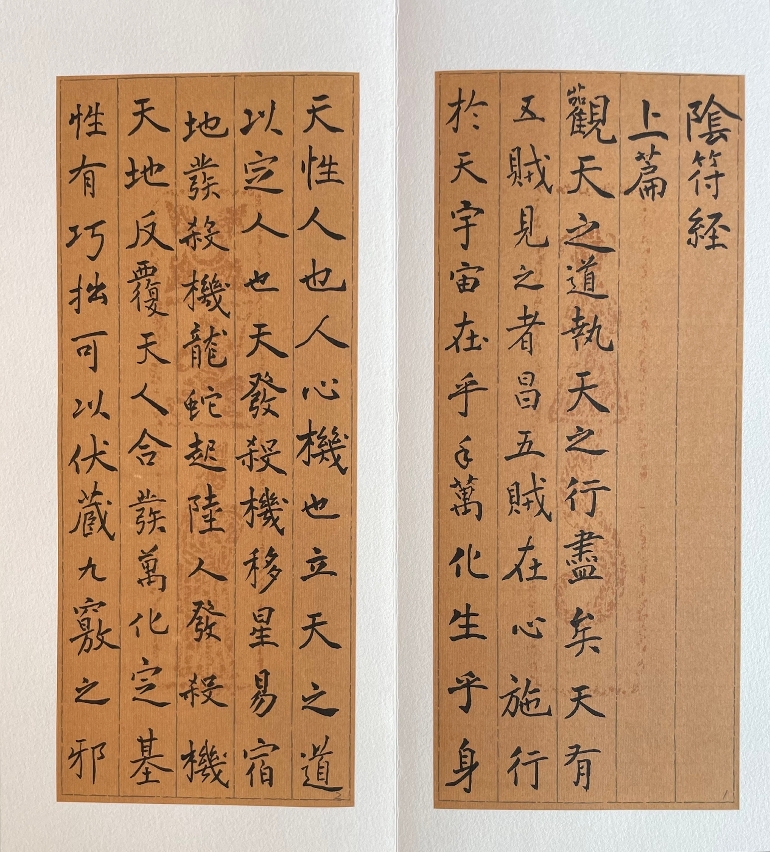 陰符経
上篇
觀天之道執天之行盡矣天有
五賊見之者昌五賊在心施行
於天宇宙在乎手萬化生乎身
天性人也人心機也立天之道
以定人也天發殺機移星易宿
地發殺機龍蛇起陸人發殺機
天地反覆天人合發萬化定基
性有巧拙可以伏藏九竅之邪